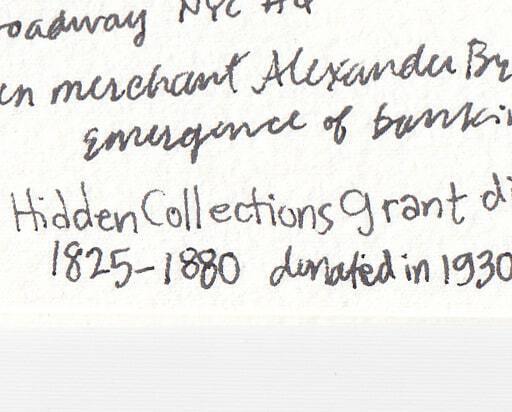 roadway NYC HQ
en merchant Alexander Br
emergence of banki
Hidden Collections grant di
1825-1880 donated in 1930